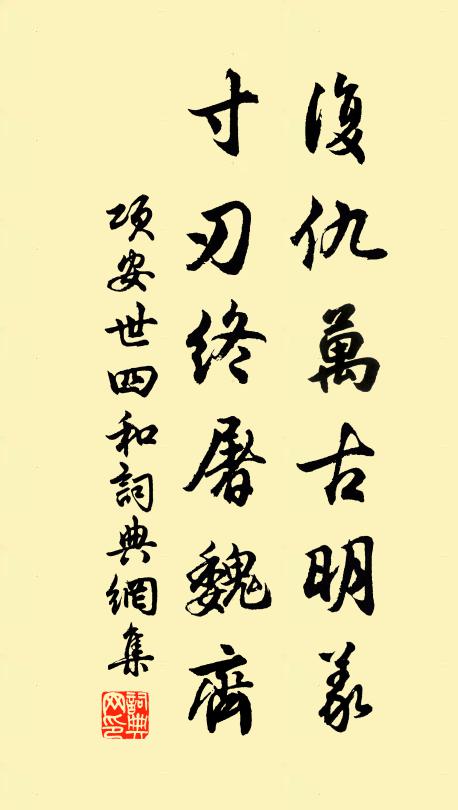 復仇萬古明義
寸刃終屠魏齊
项安世四和詞典網集
詞典网印